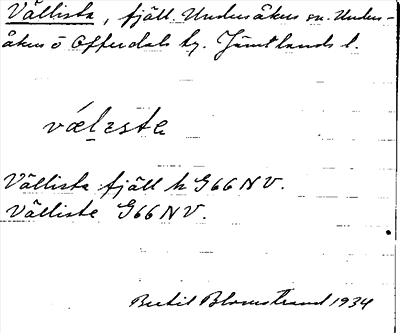 Vällista, fjäll. Undersåkers sn. Unders-
åkers o Offerdals tg. Jämtlands l.
vælɛsta
Vällista fjäll h G66NV.
Vålliste G66NV.
Bertil Blomstrand 1934